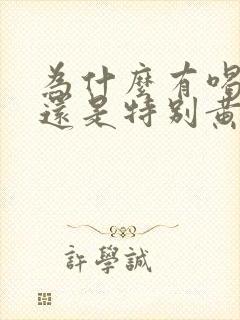 為什麼有喝
還是特別黃
許學誠